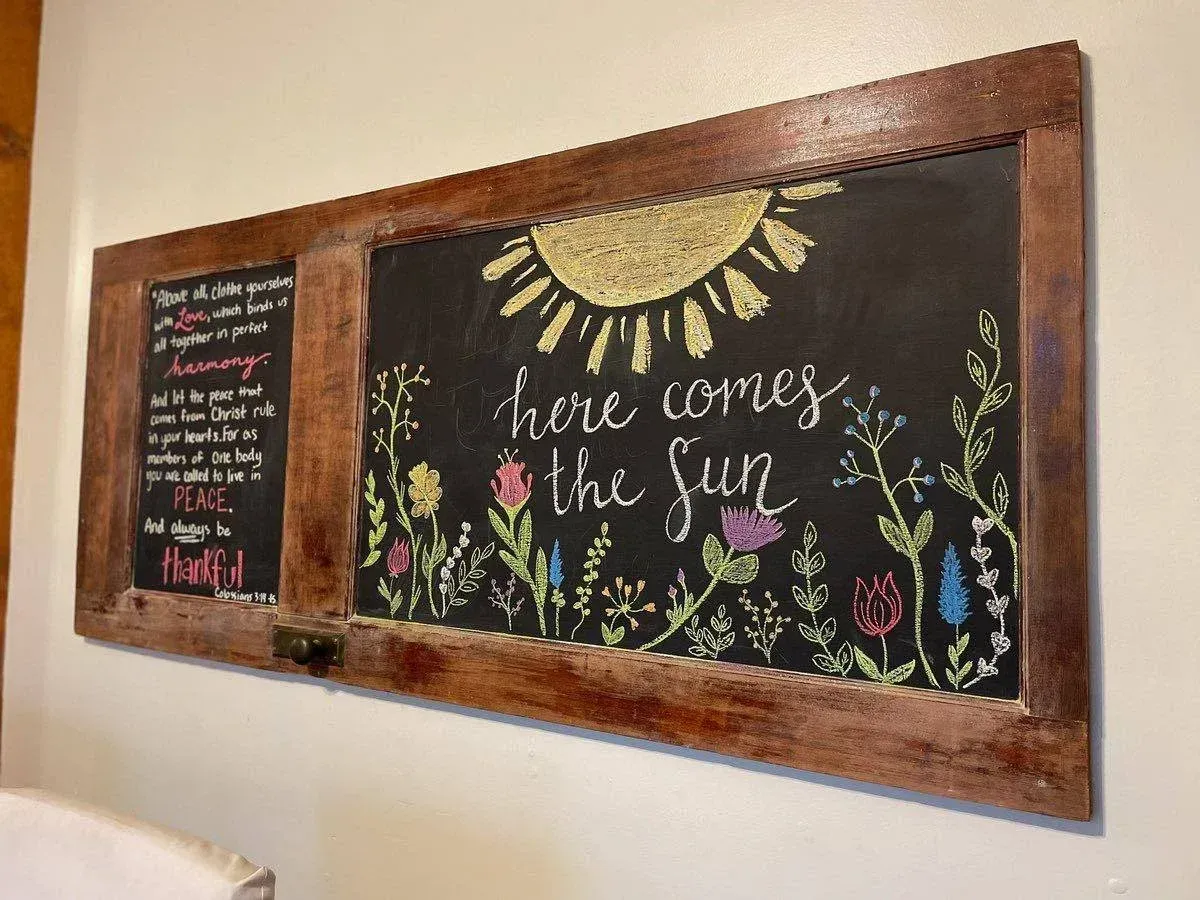 "Above all, clothe yourselves
with Love, which binds us
all together in perfect
harmony.
And let the peace that
comes from Christ rule
in your hearts. For as
members of One body
you are called to live in
PEACE.
And always be
thankful
Colossians 3:14-15
here comes
the sun